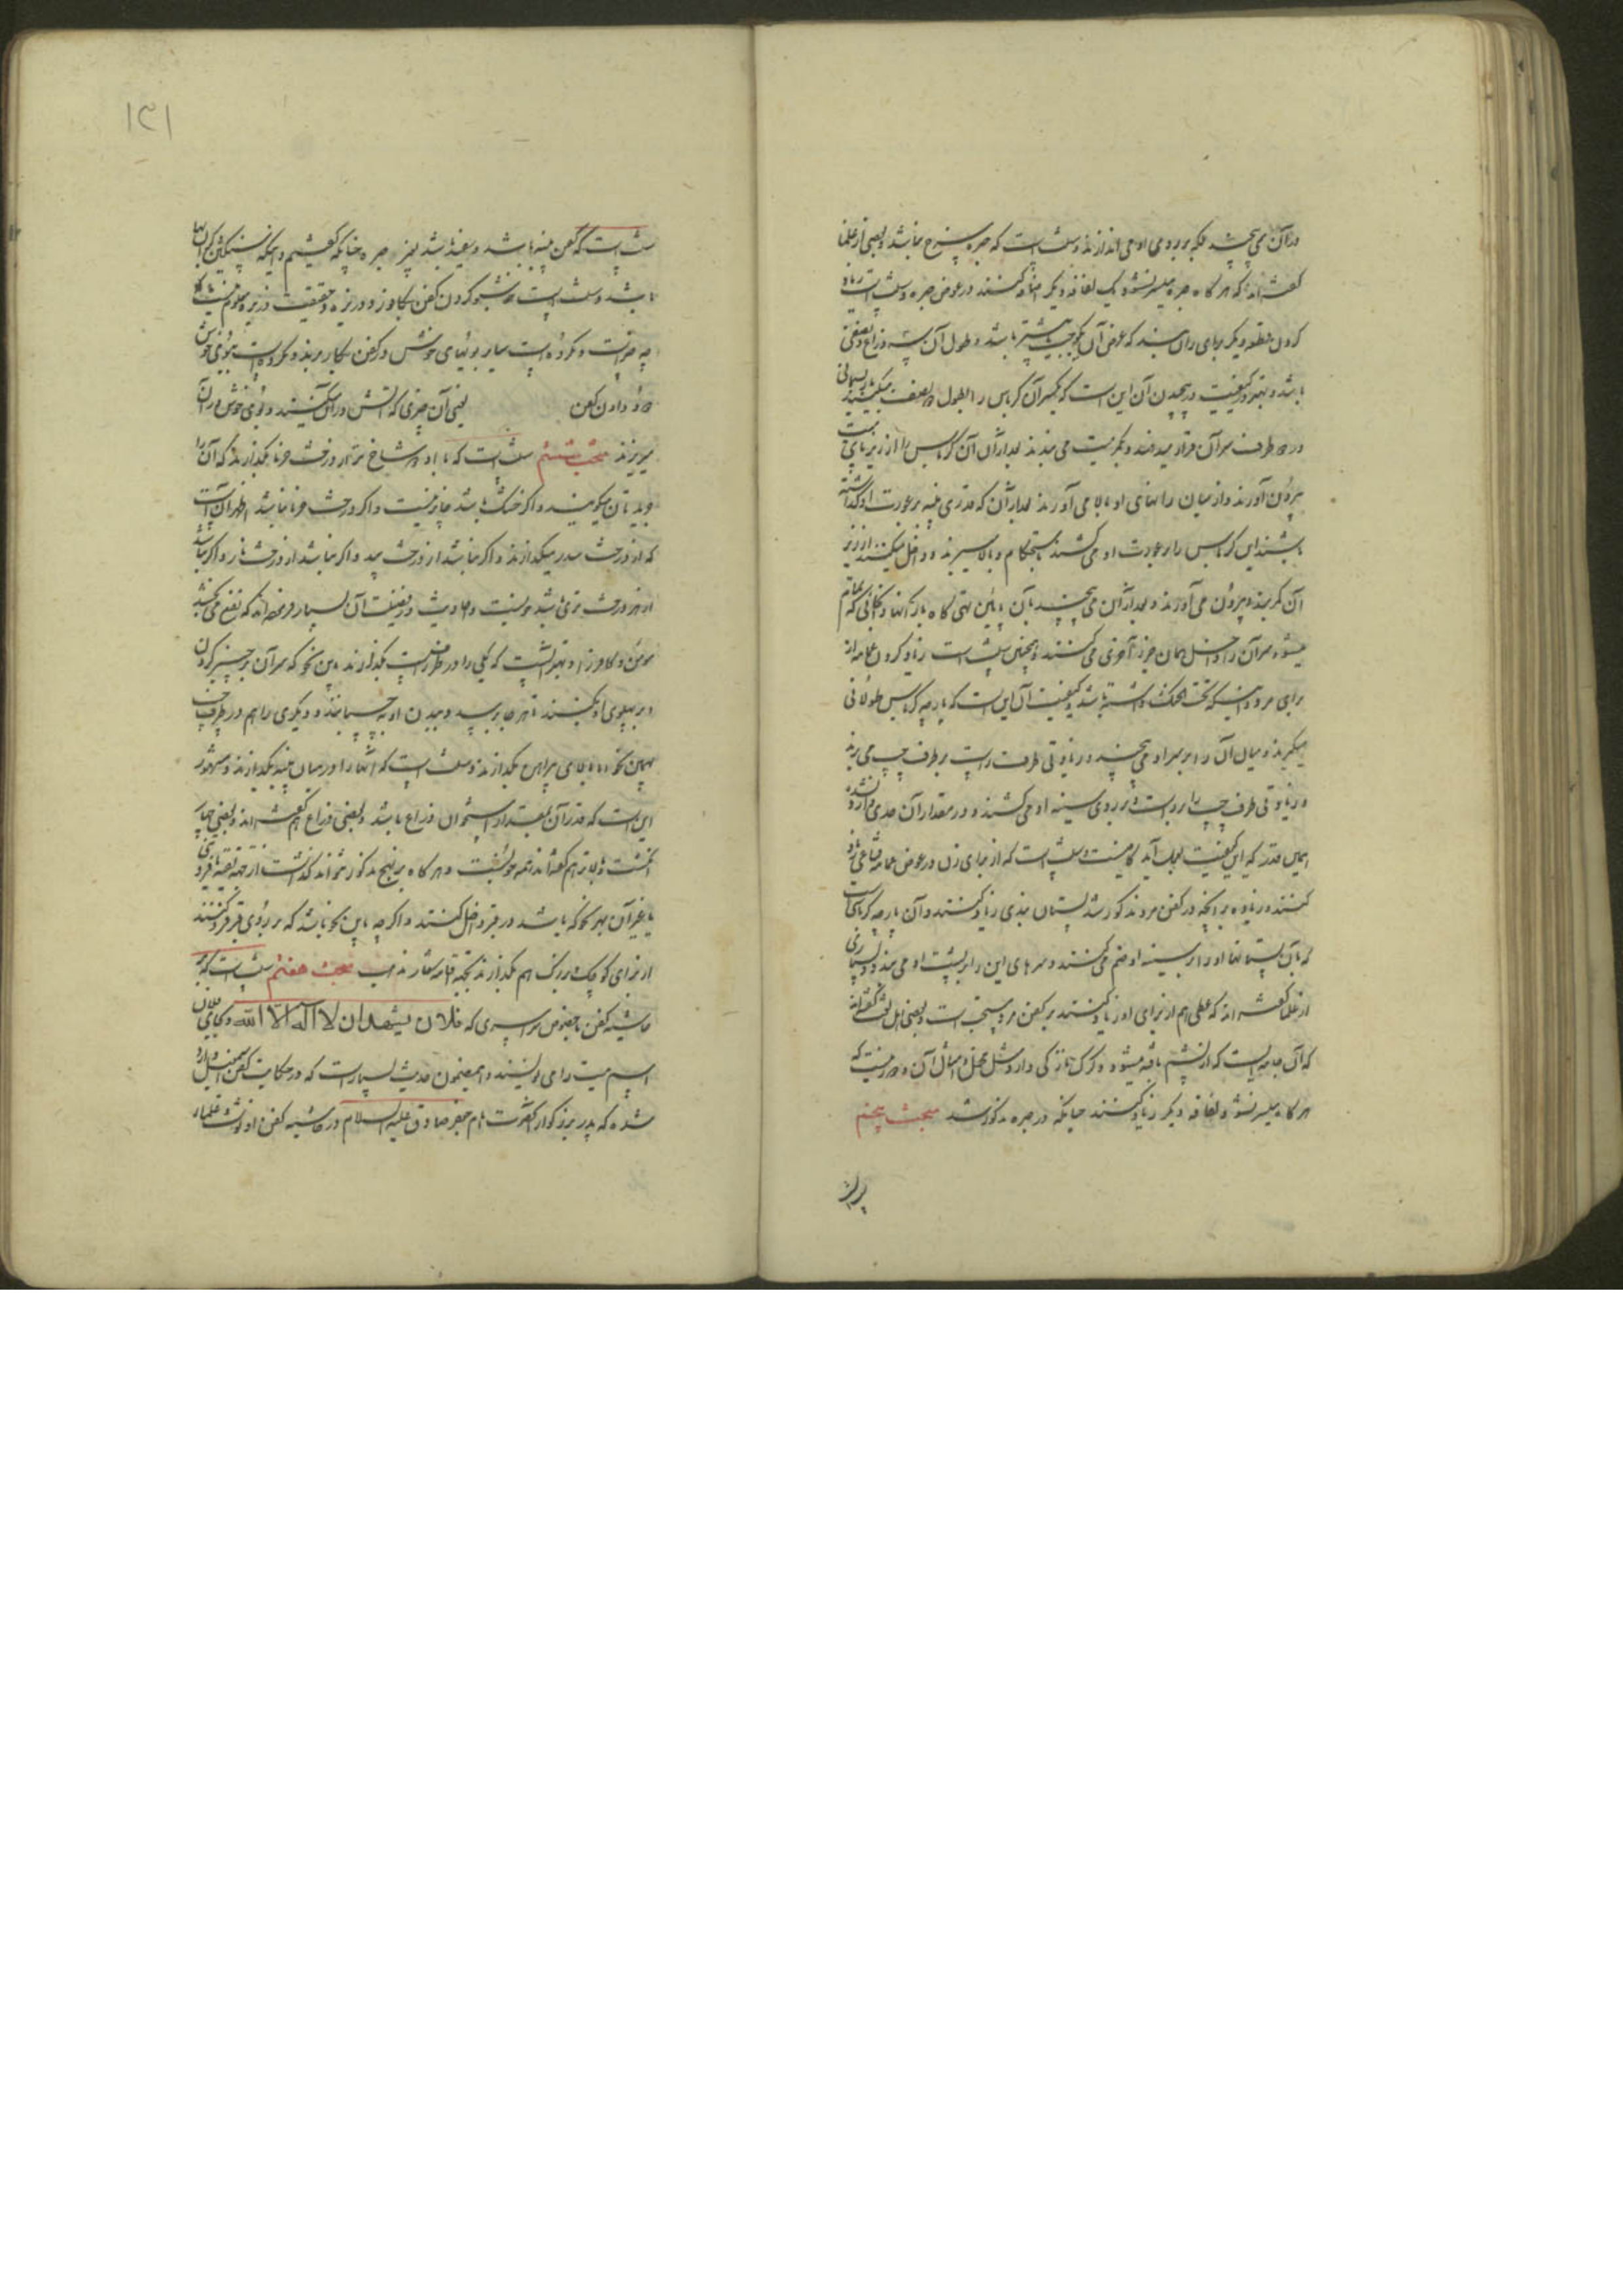 در آن نمی پیچند بلکه بر روی او می اندازند و سنت است که حبره سرخ باشد و بعضی از علما
گفته اند که هر گاه حبره میسر نشود یک لفافه دیگر اضافه کنند در عوض حبره و سنت است زیاد
کردن قطعه دیگر برای ران بند که عرض آن یک وجب یا بیشتر باشد و طول آن سه ذراع و نصفی
باشد و بهتر در کیفیت پیچیدن آن این است که یکسر آن کرباس را بطول نصف میکنند
در دو طرف سر آن قرار میدهند و بکمر میت می بندند بعد از آن آن کرباس را از زیر پای میت
بیرون آورند و از میان رانهای او بالا می آورند بعد از آن که قدری پنبه بر عورت او گذاشته
باشند این کرباس را بر عورت او می کشند باستحکام و بالا میبرند و داخل میکنند از زیر
آن کمربند و بیرون می آورند و بعد از آن می پیچند بآن پائین تهی گاه و رانها و بمکانی که تمام
میشود سر آن را داخل همان جزء آخری می کنند و همچنین سنت است زیاد کردن عمامه از
برای مرد که تحت الحنک داشته باشد و کیفیت آن این است که پارچه کرباس طولانی
میگیرند و میان آن را بر سر او می پیچند و زیادتی طرف راست بر طرف چپ می برند
و زیادتی طرف چپ را بر راست و بر روی سینه او می کشند و در مقدار آن حدی قرار نشده
همان قدر که این کیفیت بعمل آید کافیست و سنت است که از برای زن در عوض عمامه مقنعه زیاد
کنند و زیاده بر آنچه در کفن مرد مذکور شد پستان بندی زیاد کنند و آن پارچه کرباسی است
که بآن پستانها او را بر سینه او ضم می کنند و سرهای این را بر پشت او می بندند و بسیاری
از علما گفته اند که نمطی هم از برای او زیاد کنند بر کفن مرد و مستحب است و بعضی اهل لغت گفته اند
که آن جامه ایست که از پشم بافته میشود و کرک نازکی دارد مثل مخمل و امثال آن و
هر گاه میسر نشود لفافه دیگر زیاد کنند چنانکه در حبره مذکور شد مبحث پنجم
۱۳۱
سنت است که کفن پنبه باشد و سفید باشد بغیر حبره چنانکه گفتیم و اینکه
باشد و سنت است خوشبو کردن کفن بکافور و ذریره و حقیقت ذریره معلوم نیست که
چه چیز است و مکروه است سایر بوئهای خوش در کفن بکار برند و مکروه است ببوی خوش
دود دادن کفن یعنی آن چیزی که آتش در آن میکنند و بوی خوش در آن
میریزند مبحث ششم سنت است که با او دو شاخ تر از درخت خرما بگذارند که آن را
جریدتان میگویند و اگر خشک باشد جایز نیست و اگر درخت خرما نباشد اظهر آن است
که از درخت سدر میگذارند و اگر نباشد از درخت بید و اگر نباشد از درخت انار و اگر نباشد
از هر درخت تری باشد خوبست و احادیث در فضیلت آن بسیار که نفع می بخشد
مؤمن و کافر را و بهتر آنست که یکی را در طرف راست بگذارند باین نحو که سر آن بر چنبر گردن
و بر پهلوی او بکشند تا هر جا برسد و ببدن او بچسبانند و دیگری را هم در طرف چپ
بهمین نحو اما بالای پیراهن بگذارند و سنت است که آنها را در میان پنبه بگذارند و مشهور
این است که قدر آن بقدر استخوان ذراع باشد و بعضی ذراع هم گفته اند و بعضی چهار
انگشت و بالاتر هم گفته اند همه خوبست و هر گاه بر نهج مذکور نتوانند گذاشت از جهة تقیه
یا غیر آن بهر نحو که باشد در قبر داخل کنند و اگر چه باین نحو باشد که بر روی قبر فرو کنند
از برای کوچک و بزرگ هم بگذارند بجهة اقامه شعار مذهب مبحث هفتم سنت است که بر
حاشیه کفن بخصوص سراسری که فلان یشهد ان لا اله الا الله و بجای فلان
اسم میت را می نویسند و باین مضمون حدیث بسیار است که در حکایت کفن اسمعیل وارد
شده که پدر بزرگوار آنحضرت امام جعفر صادق علیه السلام در حاشیه کفن او نوشته